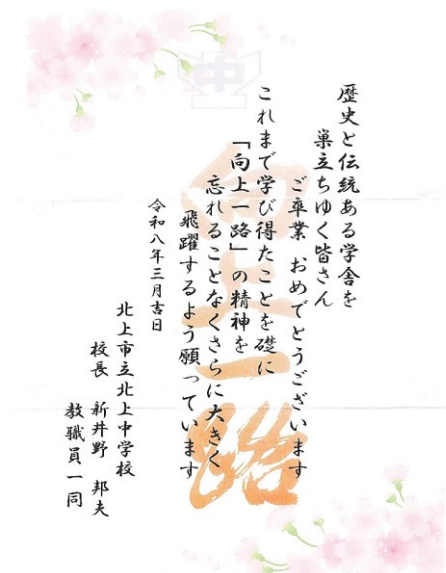 歴史と伝統ある学舎を
巣立ちゆく皆さん
ご卒業 おめでとうございます
これまで学び得たことを礎に
「向上一路」の精神を
忘れることなくさらに大きく
飛躍するよう願っています
令和八年三月吉日
北上市立北上中学校
校長 新井野 邦夫
教職員一同
中
向上一路